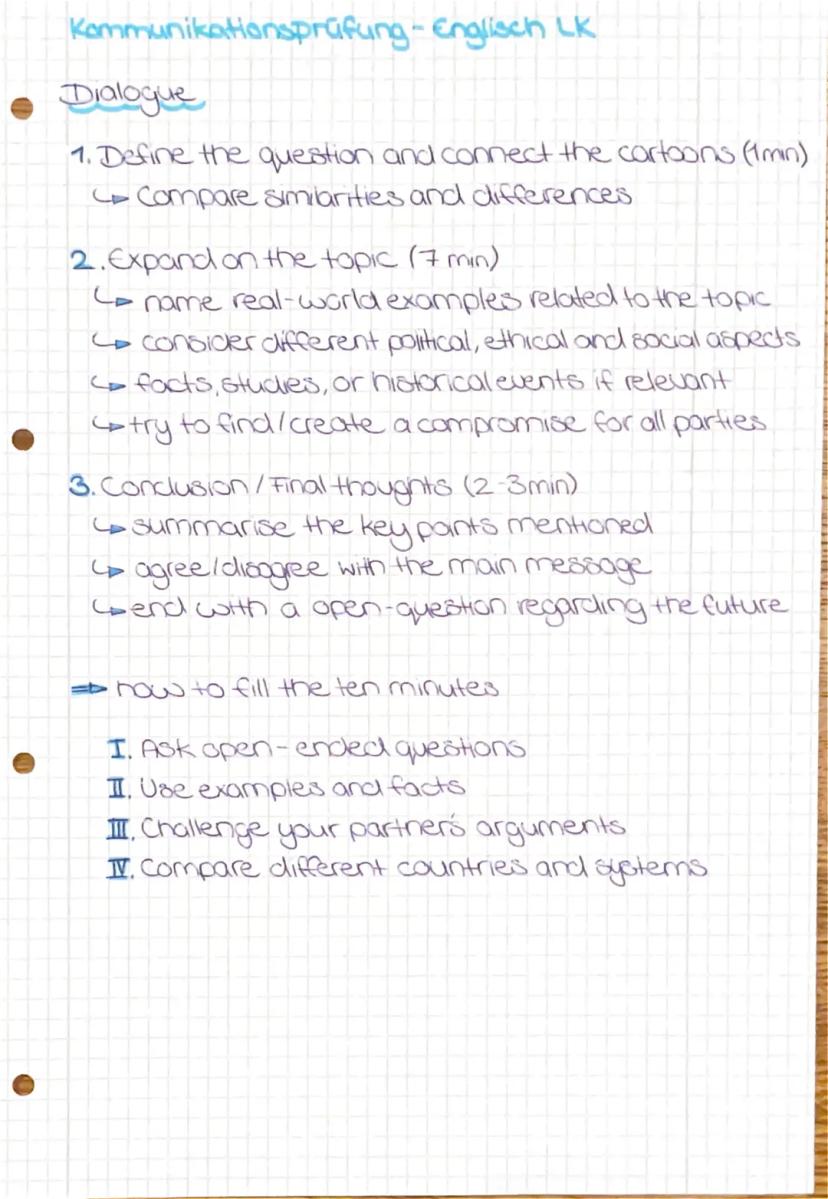 Kommunikationsprüfung - Englisch LK
Dialogue
1. Define the question and connect the cartoons (1min)
↳ Compare similarities and differences
2. Expand on the topic (7 min)
↳ name real-world examples related to the topic
↳ consider different political, ethical and social aspects
↳ facts, studies, or historical events if relevant
↳ try to find/create a compromise for all parties
3. Conclusion / Final thoughts (2-3min)
↳ summarise the key points mentioned
↳ agree/disagree with the main message
↳ end with a open-question regarding the future
⇒ how to fill the ten minutes
I. Ask open-ended questions
II. Use examples and facts
III. Challenge your partner's arguments
IV. Compare different countries and systems